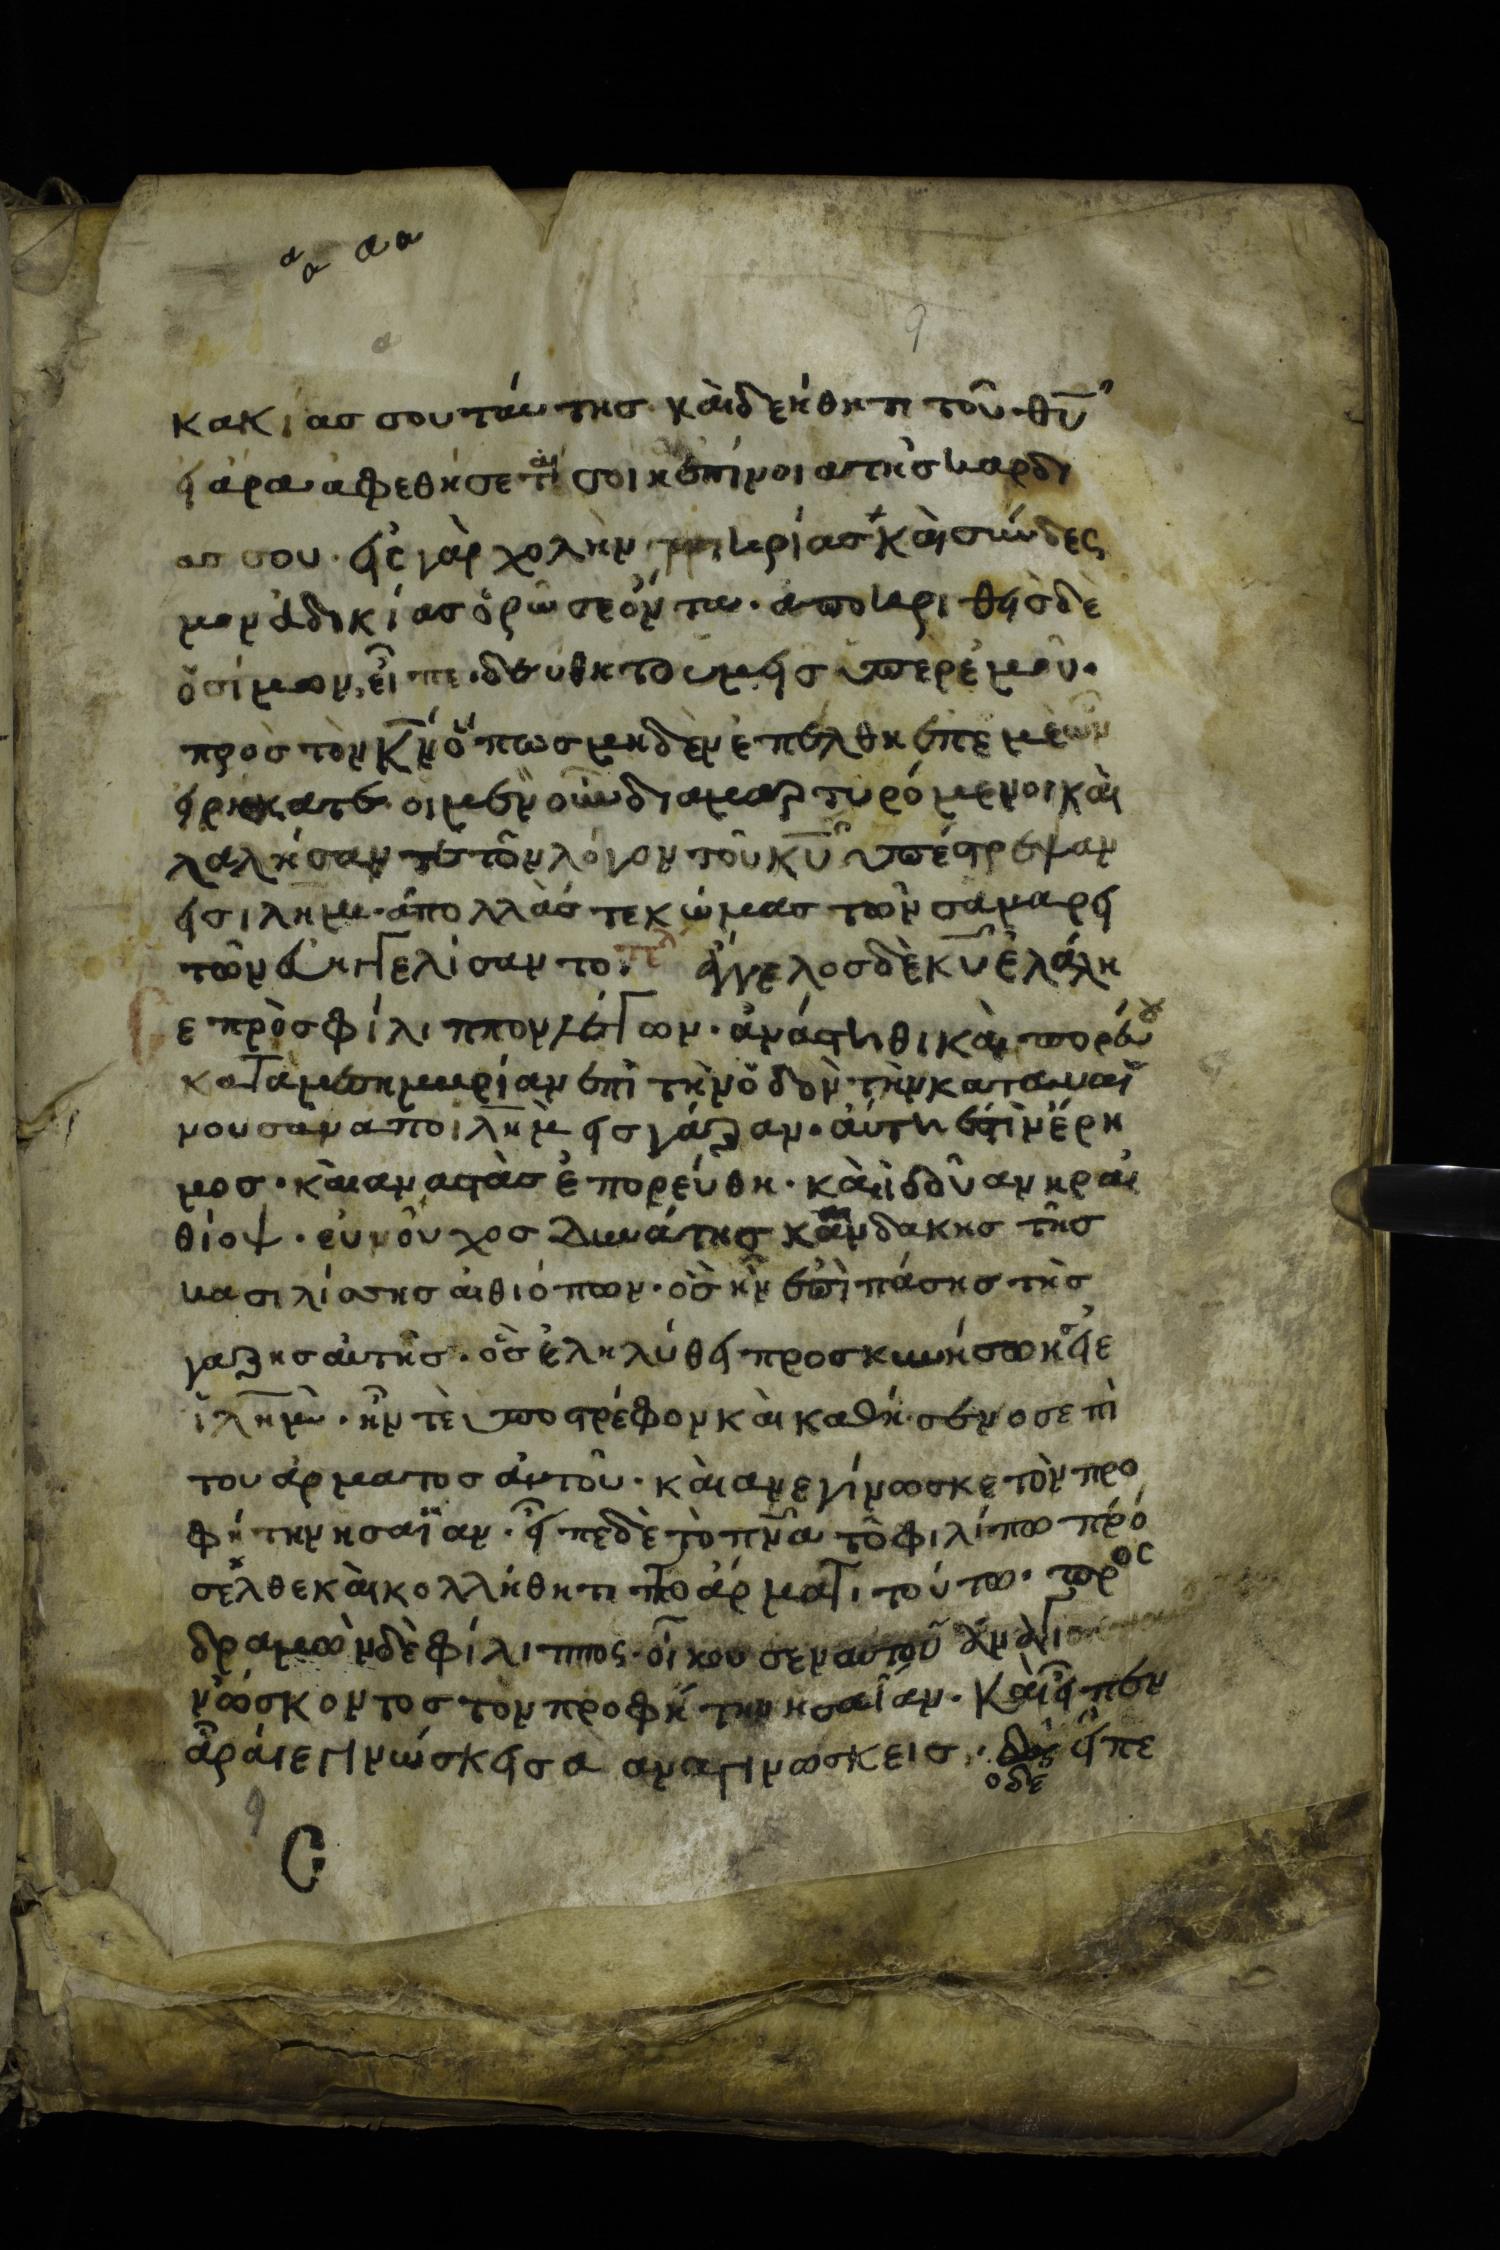 α α α α
9
κακίας σου ταύτης· καὶ δεήθητι τοῦ θῡ
εἰ ἄρα ἀφεθήσεταί σοι ἡ ἐπίνοια τῆς καρδί
ας σου· εἰς γὰρ χολὴν πικρίας καὶ σύνδες
μον ἀδικίας ὁρῶ σε ὄντα· ἀποκριθεὶς δὲ
ὁ σίμων, εἶπε· δεήθητε ὑμεῖς ὑπερ ἐμοῦ·
πρὸς τὸν κ̅ν̅ ὅπως μηδὲν ἐπέλθη ἐπ ἐμὲ ὧν
εἰρήκατε· οι μὲν οὖν διαμαρτυρόμενοι καὶ
λαλήσαντες τὸν λόγον τοῦ κ̅υ̅ ὑπέστρεψαν
εἰς ι̅λ̅η̅μ̅· πολλάς τε κώμας τῶν σαμαρει
τῶν εὐηγγελίσαντο· ἄγγελος δὲ κ̅υ̅ ἐλάλη
σε πρὸς φίλιππον λέγων· ἀνάστηθι καὶ πορεύου
κατὰ μεσημβρίαν ἐπὶ τὴν ὁδὸν τὴν καταβαί
νουσαν απο ι̅λ̅η̅μ̅ εἰς γάζαν· αὐτη ἐστὶν ἔρη
μος· καὶ αναστὰς ἐπορεύθη· καὶ ἰδοῦ ανηρ αἰ
θίοψ· εὐνοῦχος δυνάτης κανδακης τῆς
βασιλίσσης αἰθιόπων· ὃς ἦν ἐπὶ πάσης τῆς
γαζης αὐτῆς· ὃς ἐληλύθει προσκυνήσων εἰς
ι̅λ̅η̅μ̅· ἦν τὲ ὑποστρέφον καὶ καθήμενος επὶ
του ἁρματος αὐτοῦ· καὶ ανεγίνωσκε τὸν προ
φήτην ησαΐαν· εἶπε δὲ τὸ π̅ν̅α̅ τῶ φιλίπω πρό
σελθε καὶ κολλήθητι τῶ ἅρματι τούτω· προς
δραμὼν δὲ φίλιππος· ἤκουσεν αυτοῦ ἀναγι
νώσκοντος τὸν προφήτην ησαΐαν· καὶ εἶπεν
ἆρά γε γινώσκεις ἃ αναγινωσκεις· ὁδὲ εἶπε
9